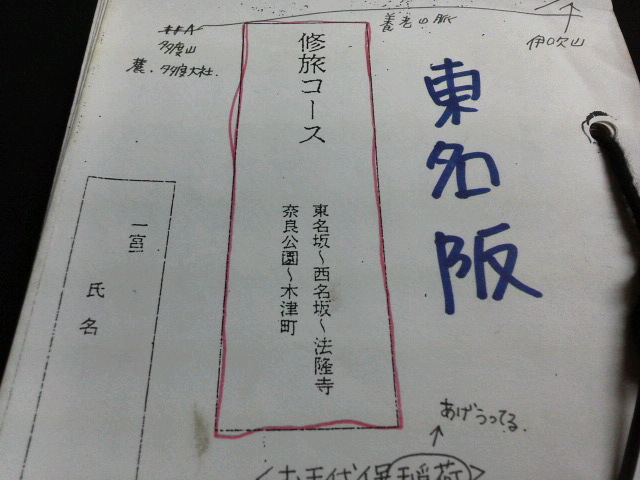 養老山脈
伊吹山
多度山
農・多度大社
東名阪
修旅コース
東名坂～西名坂～法隆寺
奈良公園～木津町
一宮
氏名
あげうってる。